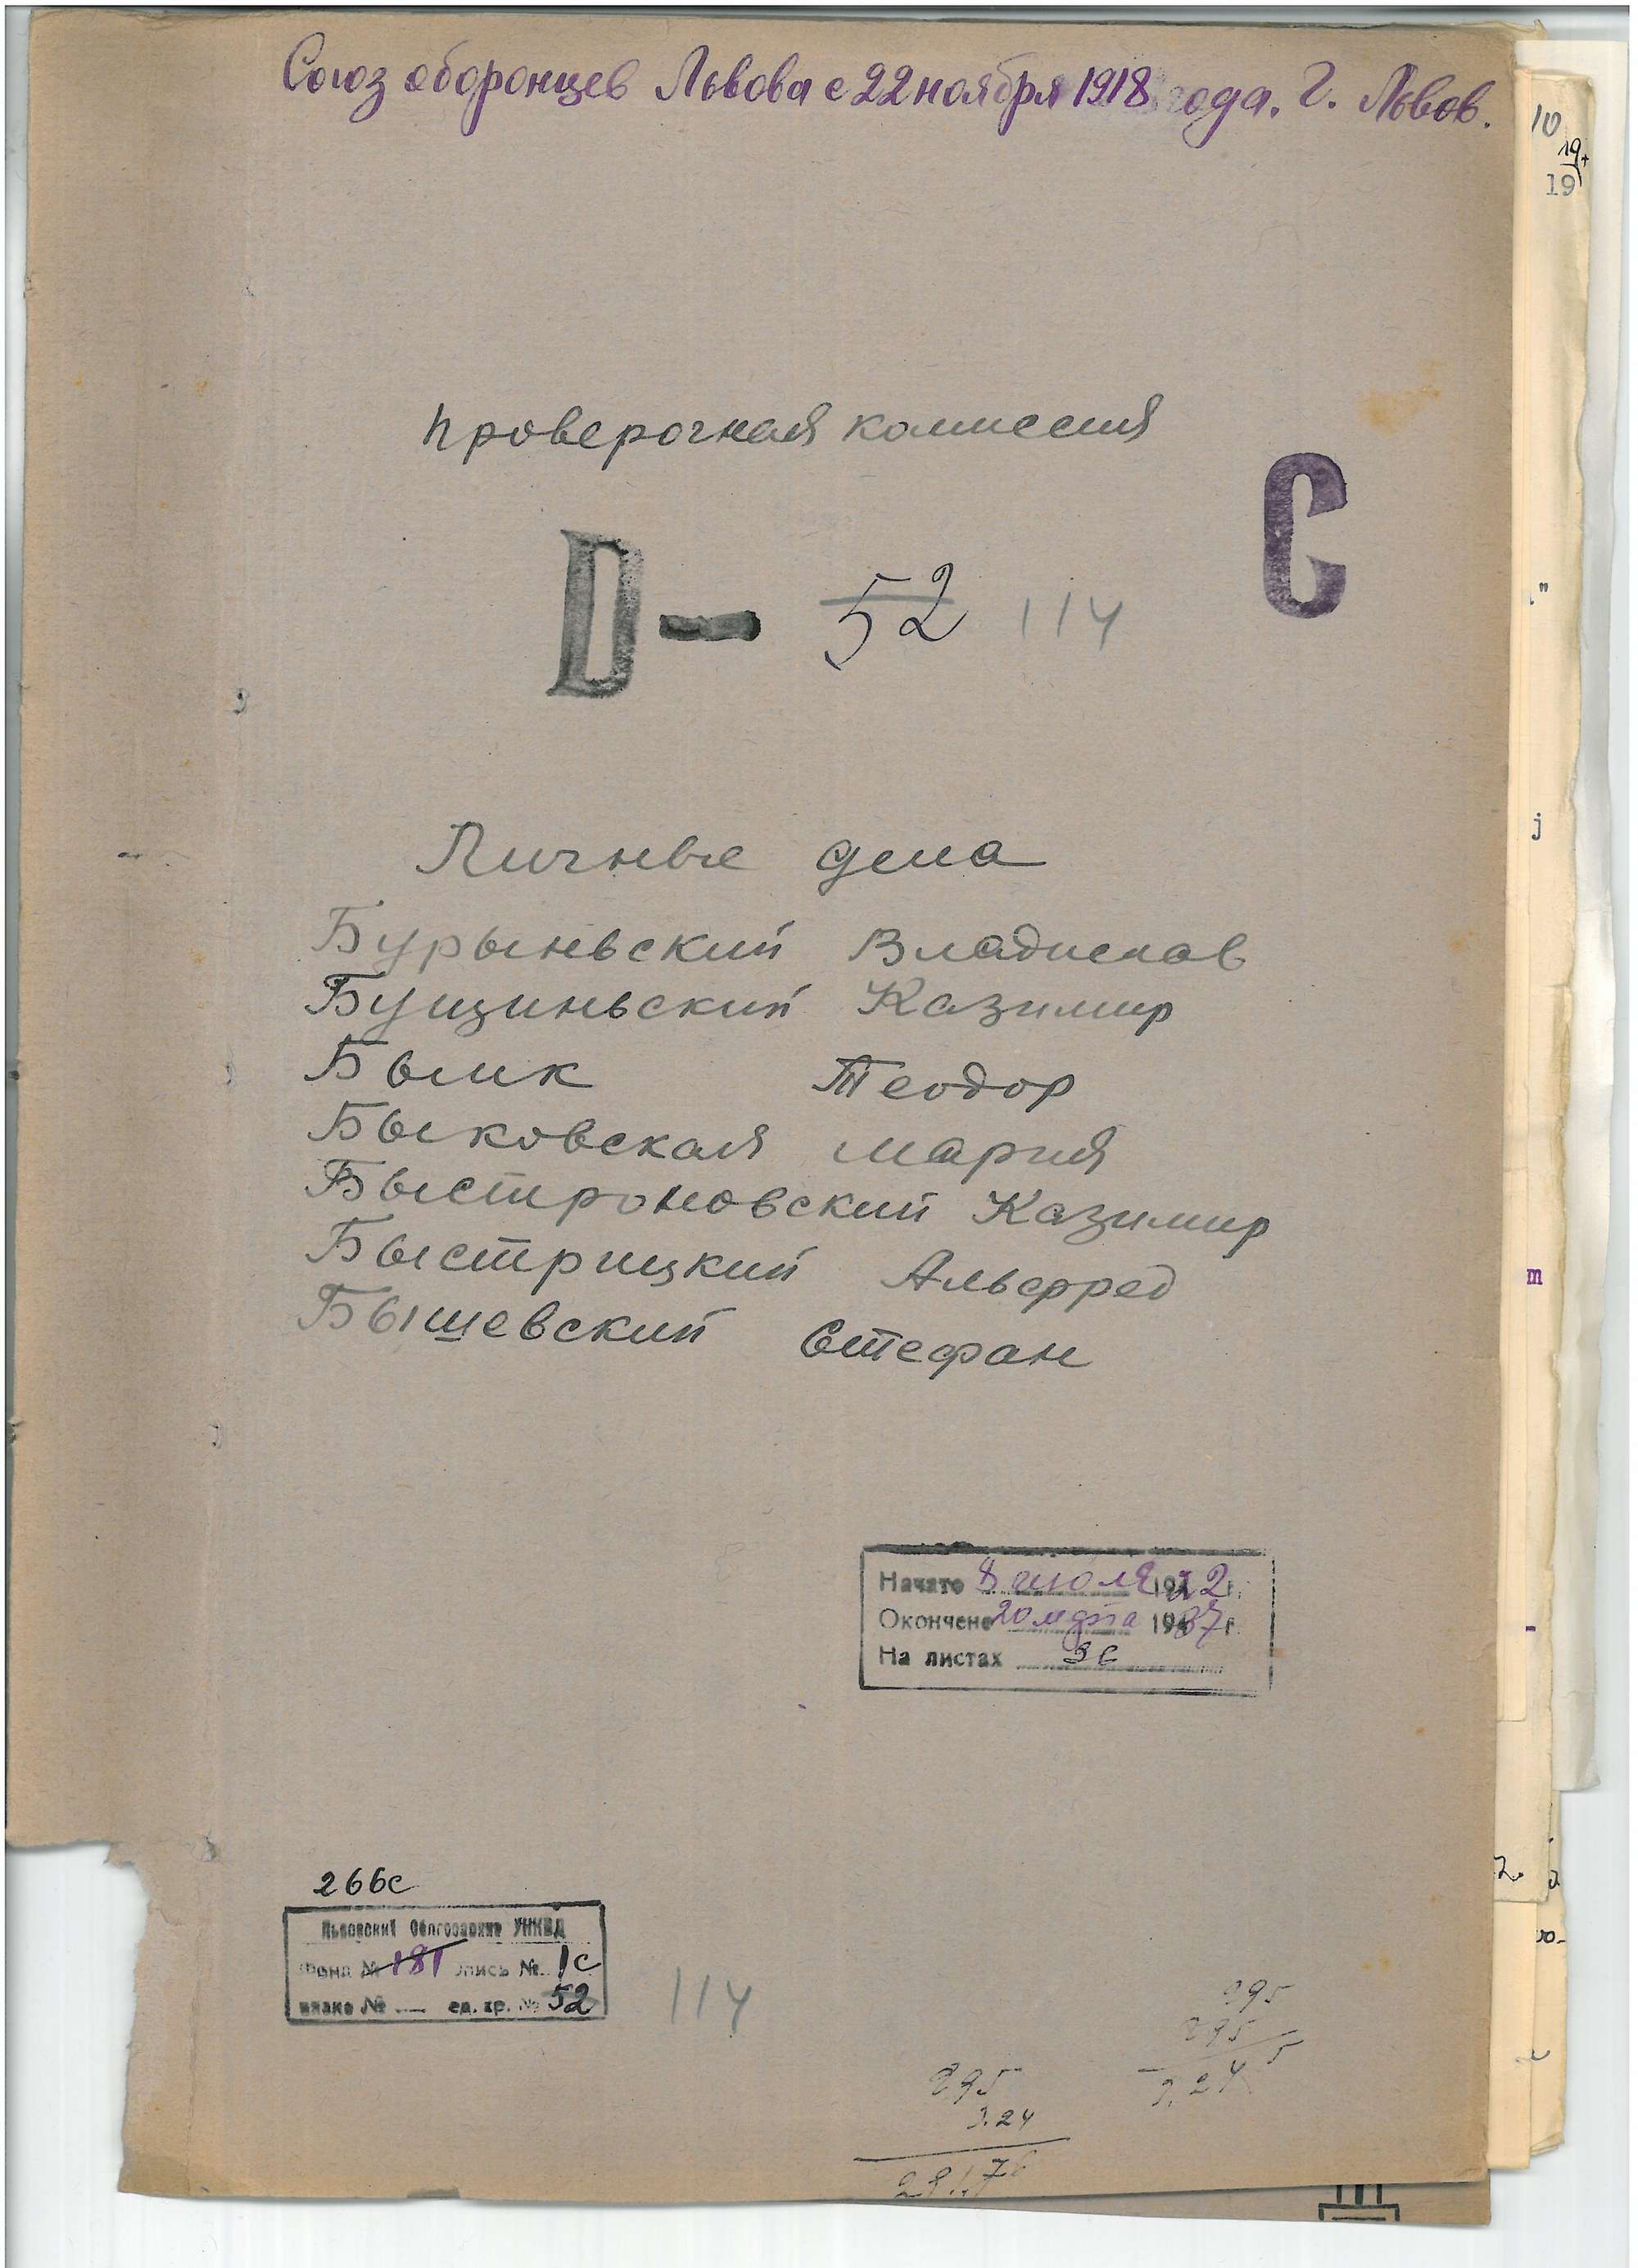 Союз оборонцев Львова с 22 ноября 1918 года. Г. Львов.
10
19
19
Проверочная комиссия
С
D — 52 114
Личные дела
Бурыньский Владислав
Бущиньский Казимир
Былик Теодор
Быковская Мария
Быстроновский Казимир
Быстрицкий Альфред
Бышевский Стефан
j
m
Начато 8 июля 1922 г.
Окончено 20 марта 1937 г.
На листах
266с
Львовский Облгосархив УНКВД
Фонд № 181 опись № 1с
ед. хр. № 52
114
295
295
3.24 5
295
3.24